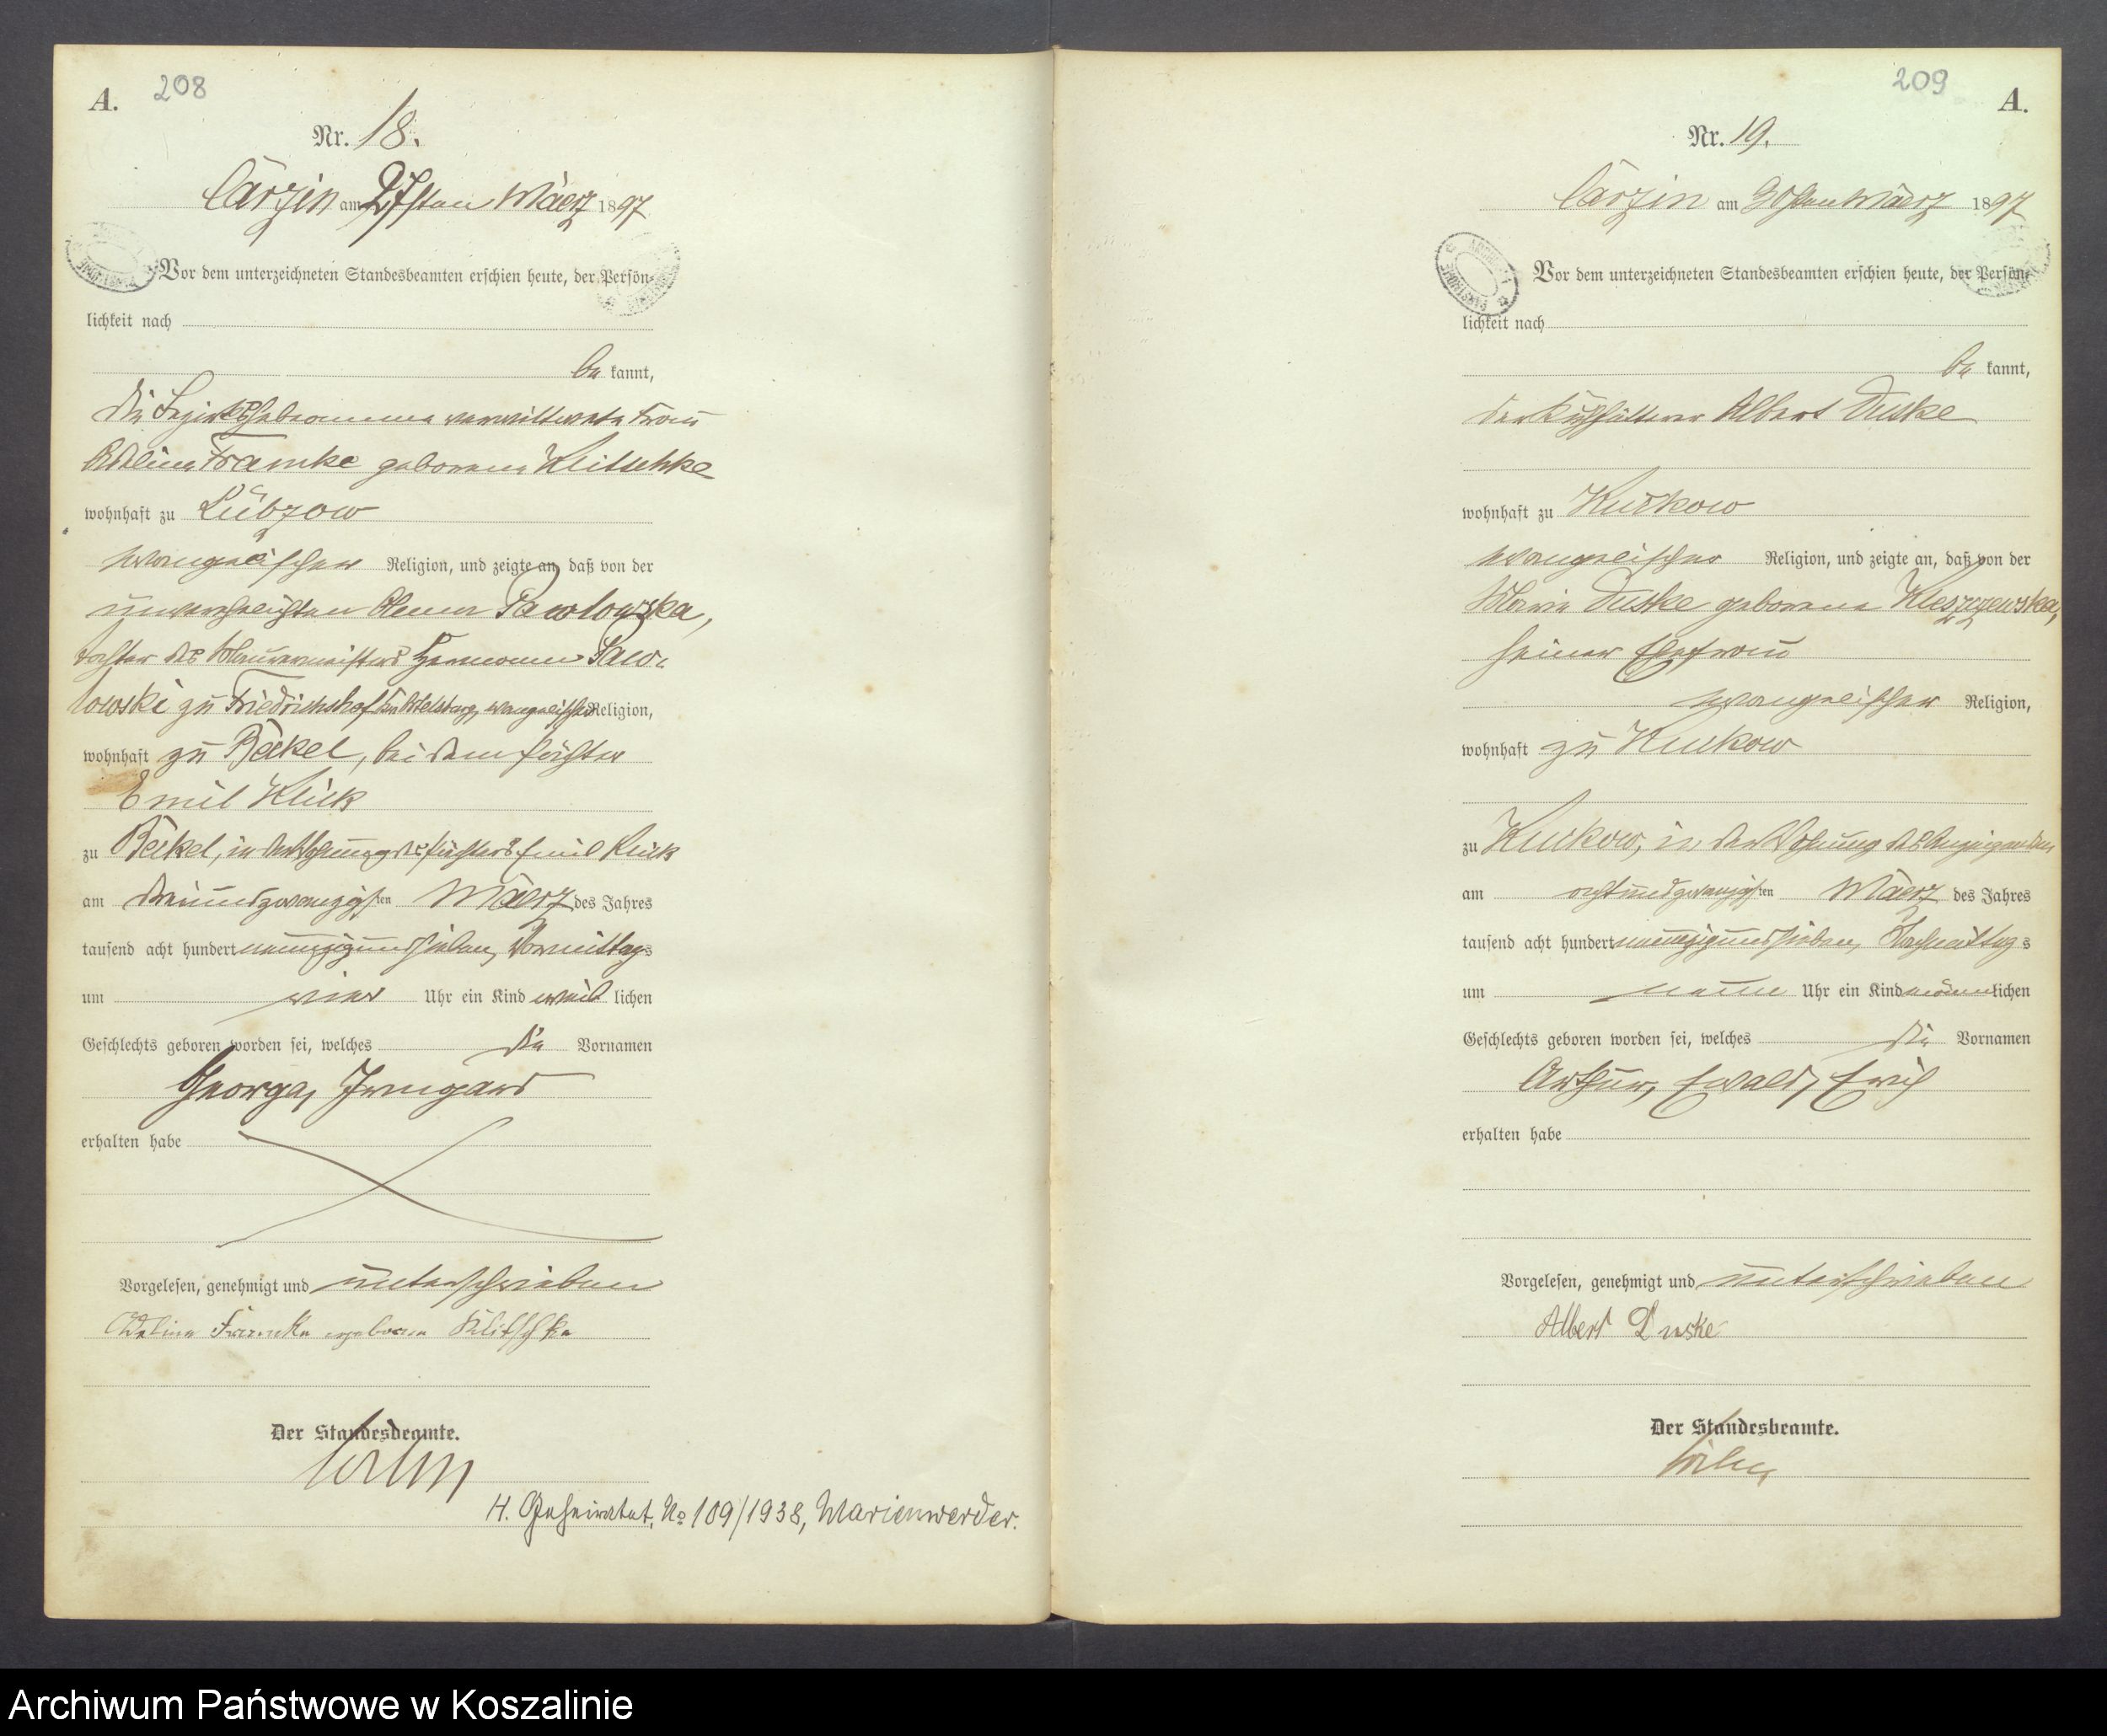 A. 208
Nr. 18.
Carzin am 27sten März 1897
Vor dem unterzeichneten Standesbeamten erschien heute, der Persön-
lichkeit nach
be kannt,
die Bezirkshebamme verwittwete Frau
Adeline Framke geborene Klitschke
wohnhaft zu Lübzow
evangelischer Religion, und zeigte an, daß von der
unverehelichten Pawlowska,
Tochter des Maurermeisters Hermann Paw-
lowski zu Friedrichshof bei Ortelsburg, evangelischer Religion,
wohnhaft zu Beckel, bei dem Pächter
Emil Klick
zu Beckel, in der Wohnung des Pächters Emil Klick
am dreiundzwanzigsten März des Jahres
tausend acht hundert neunzig und sieben, Vormittags
um vier Uhr ein Kind weiblichen
Geschlechts geboren worden sei, welches die Vornamen
George, Irmgard
erhalten habe
Vorgelesen, genehmigt und unterschrieben
Adeline Framke geborene Klitschke
Der Standesbeamte.
H. Geheiratet, No 109/1938, Marienwerder.
209 A.
Nr. 19.
Carzin am 30sten März 1897
Vor dem unterzeichneten Standesbeamten erschien heute, der Persön-
lichkeit nach
be kannt,
der Kuhfütterer Albert Duske
wohnhaft zu Kuckow
evangelischer Religion, und zeigte an, daß von der
Marie Duske geborene
seiner Ehefrau
evangelischer Religion,
wohnhaft zu Kuckow
zu Kuckow, in der Wohnung des Anzeigenden
am achtundzwanzigsten März des Jahres
tausend acht hundert neunzig und sieben, Nachmittags
um neun Uhr ein Kind männlichen
Geschlechts geboren worden sei, welches die Vornamen
Arthur, Ewald, Erich
erhalten habe
Vorgelesen, genehmigt und unterschrieben
Albert Duske
Der Standesbeamte.
Archiwum Państwowe w Koszalinie